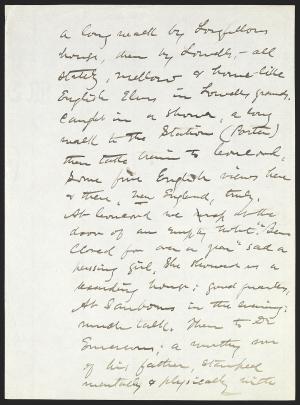 a long walk by Longfellows
house, then by Lowells, - all
stately, mellow & home-like
English Elms in Lowells grounds.
Caught in a shower, a long
walk to the Station (Porter)
then take train to Concord,
Some fine English views here
& there, New England, truly.
At Concord we stop at the
door of an empty hotel. "Been
Closed for over a year" said a
passing girl. She showed us a
boarding house; good quarters,
At Sanborns in the evening;
much talk. Then to Dr
Emerson; a worthy son
of his father, stamped
mentally & physically with